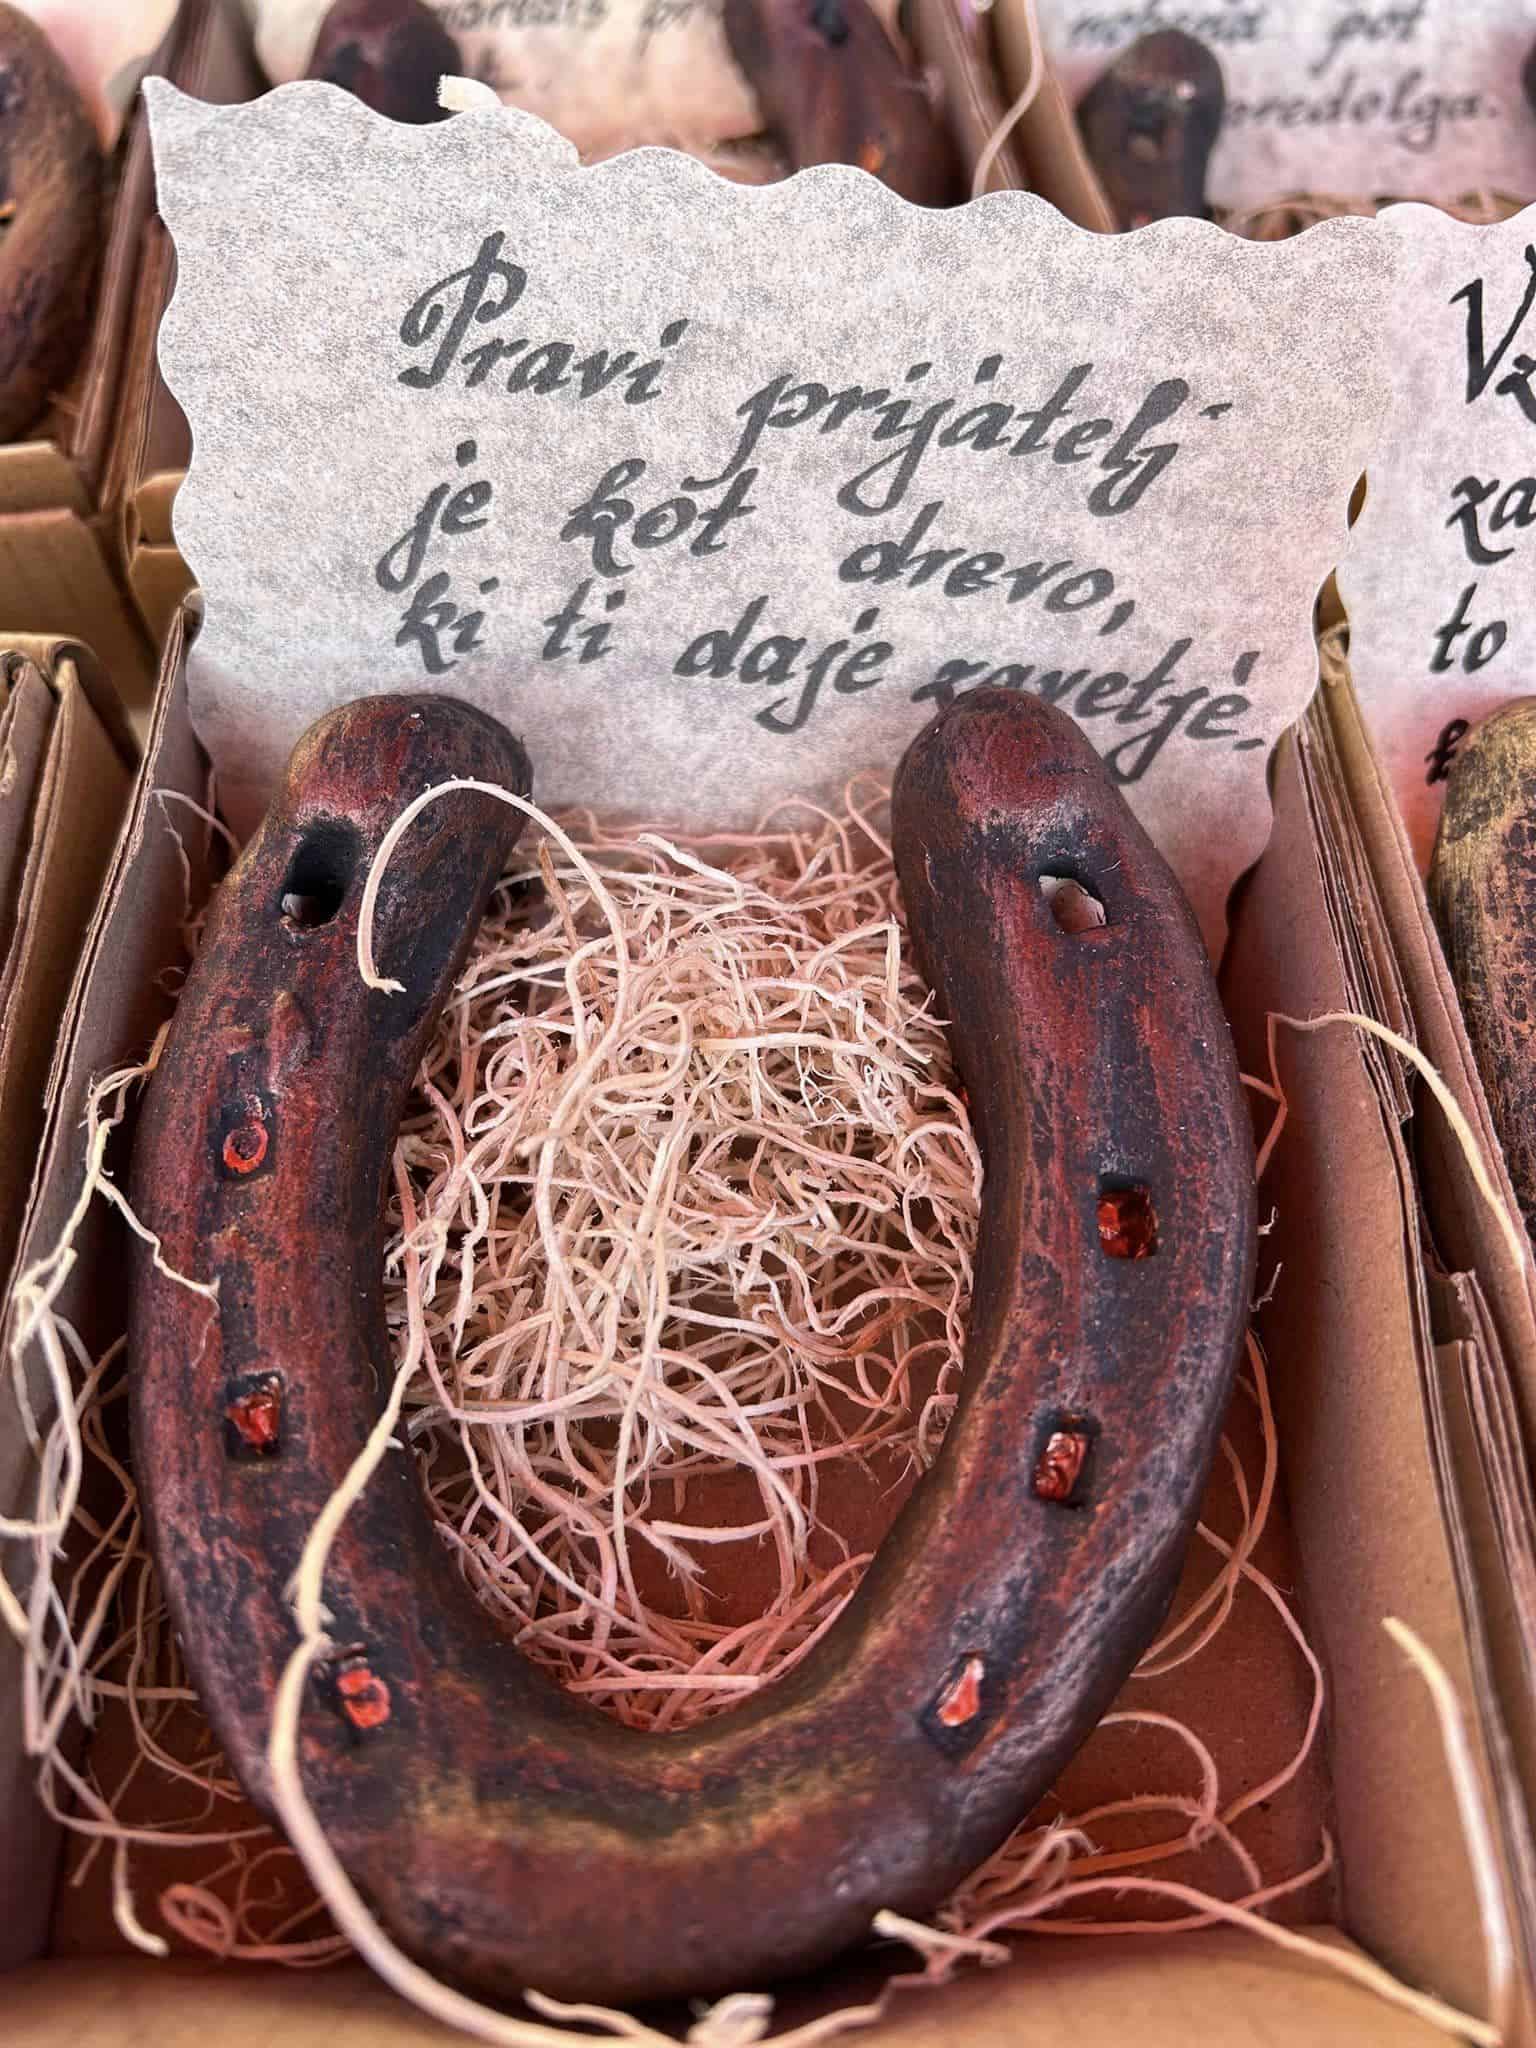 pot
predolga.
Pravi prijatelj
je kot drevo,
ki ti daje zavetje.
to